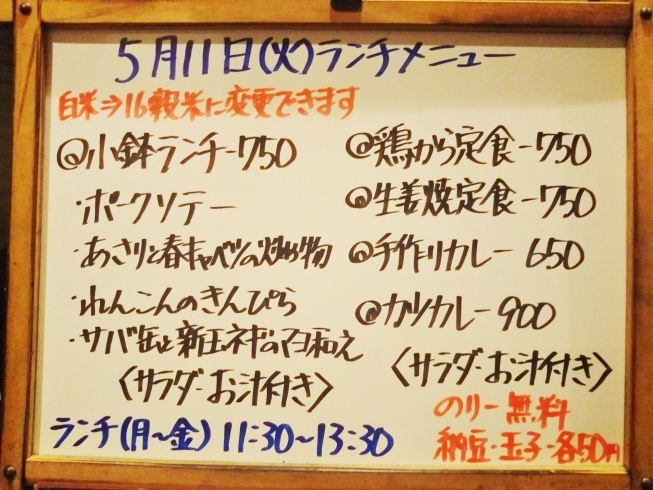 5月11日(火)ランチメニュー
白米⇒16穀米に変更できます
@小鉢ランチ-750
・ポークソテー
・あさりと春キャベツの炒め物
・れんこんのきんぴら
・サバ缶と新玉ネギのマヨ和え
〈サラダ・お汁付き〉
@鶏から定食-750
@生姜焼定食-750
@手作りカレー 650
@カツカレー900
〈サラダ・お汁付き〉
のりー無料
納豆・玉子・各50円
ランチ(月〜金) 11:30〜13:30